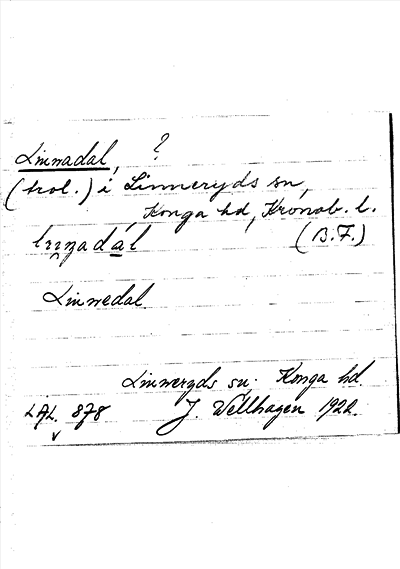 Linnadal, ?
(trol.) i Linneryds sn,
Konga hd, Kronob. l.
(B.F.)
Linnedal.
Linneryds sn. Konga hd.
LAL. 878 J. Wellhagen 1922.